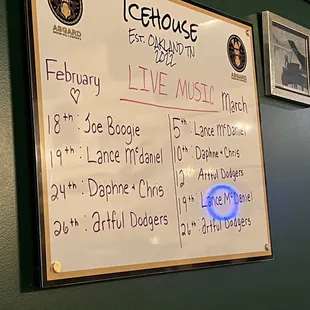 ICEHOUSE
EST. OAKLAND TN
2022
ASGARD
ASGARD
LIVE MUSIC
February
18th: Joe Boogie
19th: Lance McDaniel
24th: Daphne + Chris
26th: Artful Dodgers
March
5th: Lance McDaniel
10th: Daphne + Chris
12th: Artful Dodgers
19th: Lance McDaniel
26th: Artful Dodgers